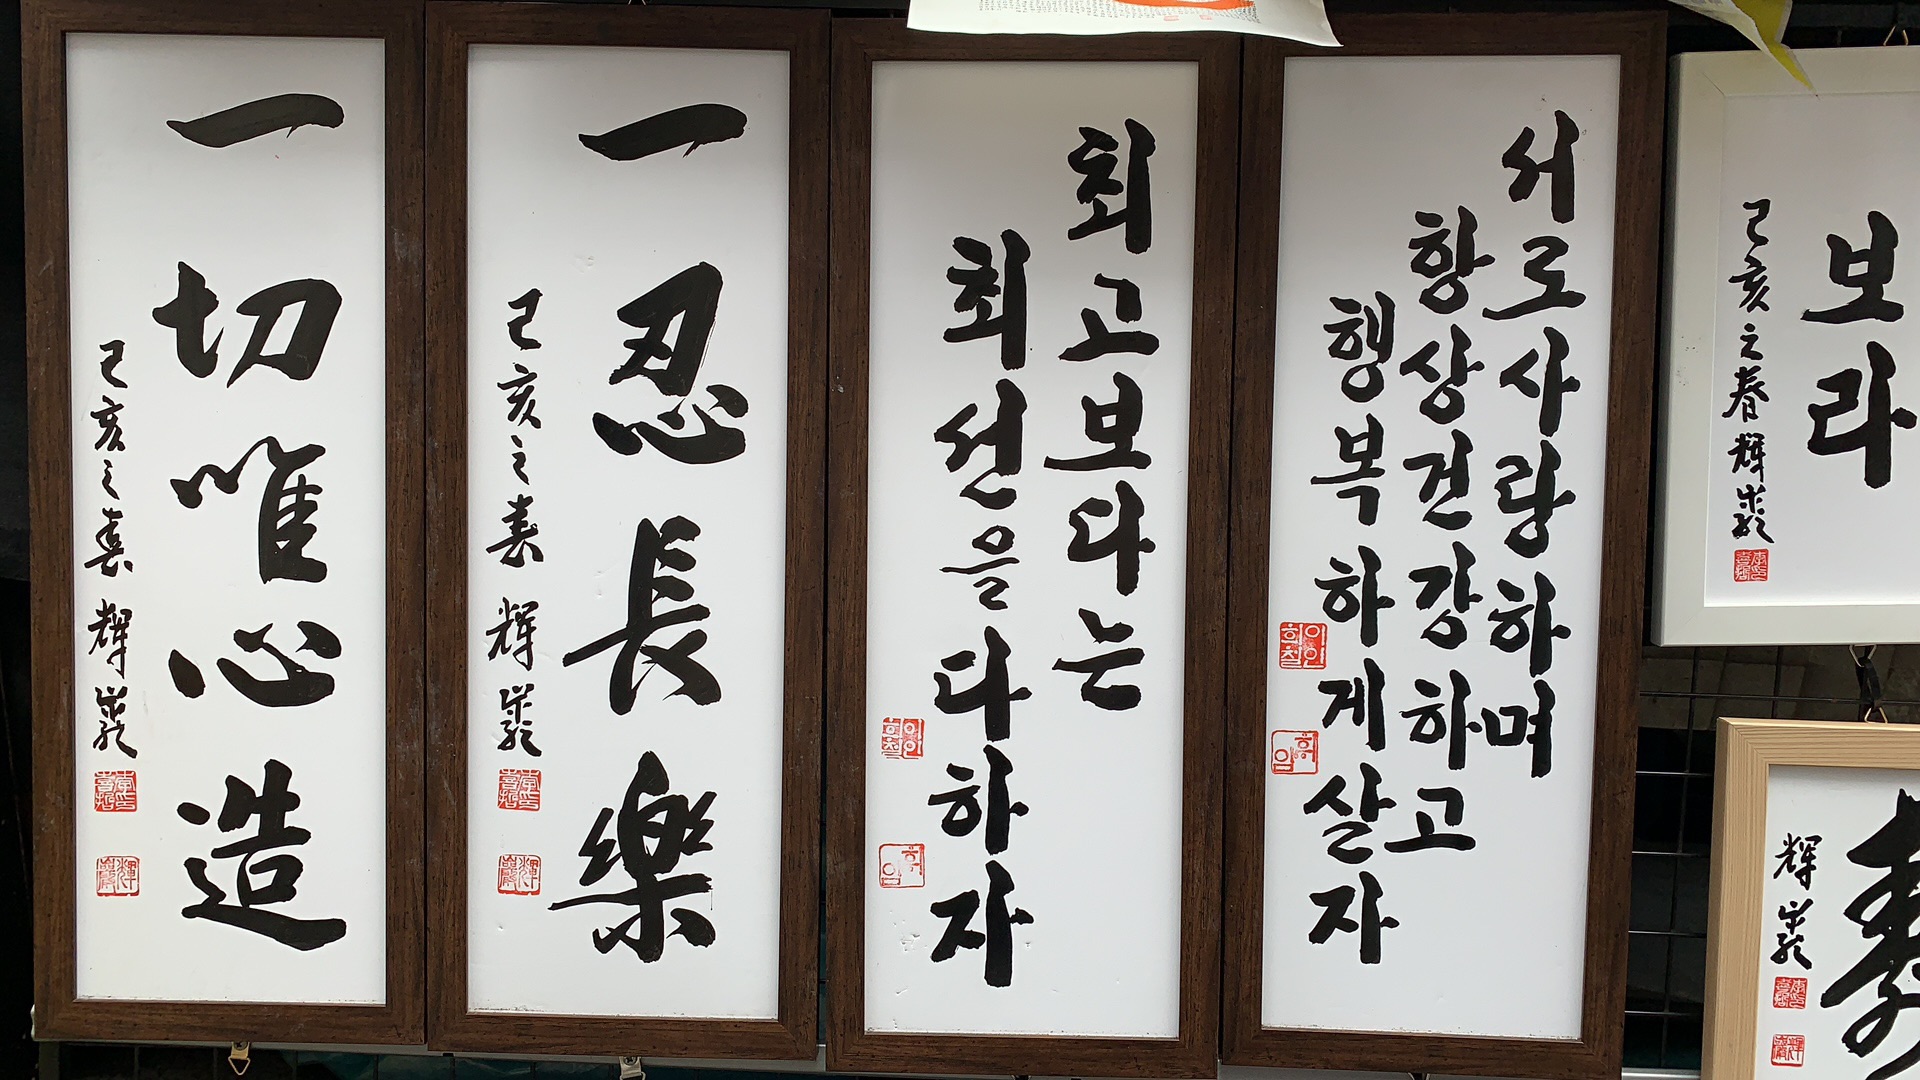 一切唯心造
己亥之春 輝巖
一忍長樂
己亥之春 輝巖
최고보다는
최선을다하자
서로사랑하며
항상건강하고
행복하게살자
보라
己亥之春輝巖
壽
輝巖